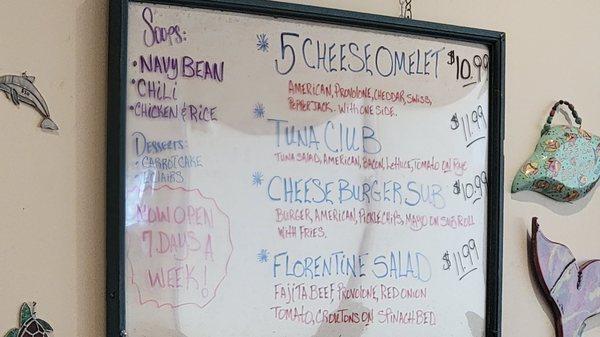 Soups:
• Navy Bean
• Chili
• Chicken & Rice
Desserts:
• Carrot Cake
• Eclairs
Now Open
7 Days A
Week!
* 5 Cheese Omelet $10.99
American, Provolone, Cheddar, Swiss,
Pepperjack. With one side.
* Tuna Club $11.99
Tuna Salad, American, Bacon, Lettuce, Tomato on Rye
* Cheese Burger Sub $10.99
Burger, American, Pickle Chips, Mayo on Sub Roll
with Fries.
* Florentine Salad $11.99
Fajita Beef, Provolone, Red Onion
Tomato, Croutons on Spinach Bed